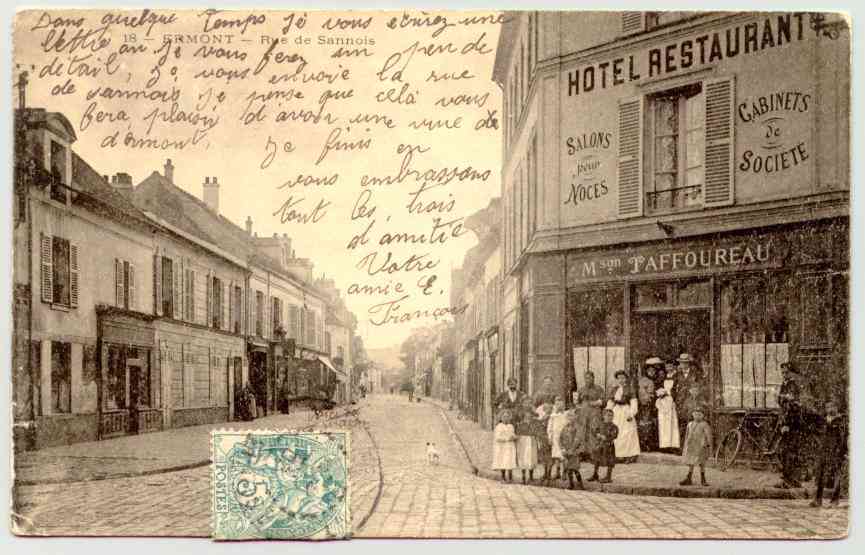 Dans quelque temps je vous écrirez une
18 - ERMONT - Rue de Sannois
lettre ou je vous ferez un peu de
détail, je vous envoie la rue
de sannois je pense que celà vous
fera plaisir d'avoir une vue de
d'ermont. Je finis en
vous embrassons
tout les trois
d'amitie
Votre
amie E.
François
HOTEL RESTAURANT
SALONS
pour
NOCES
CABINETS
de
SOCIETE
Mson TAFFOUREAU
5c
POSTES